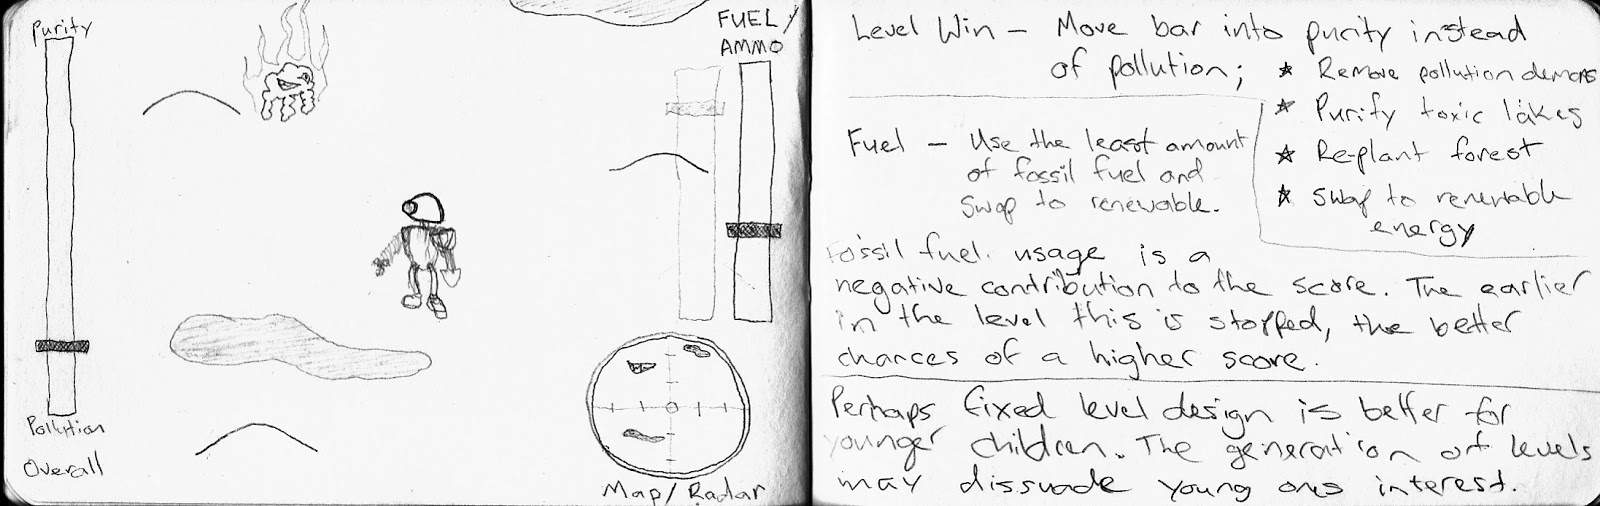 Purity
FUEL/
AMMO
Pollution
Overall
Map/Radar
Level Win - Move bar into purity instead
of pollution;
★ Remove pollution demons
★ Purify toxic lakes
★ Re-plant forest
★ Swap to renewable
energy
Fuel - Use the least amount
of fossil fuel and
swap to renewable.
Fossil fuel usage is a
negative contribution to the score. The earlier
in the level this is stopped, the better
chances of a higher score.
Perhaps fixed level design is better for
younger children. The generation of levels
may dissuade young ones interest.